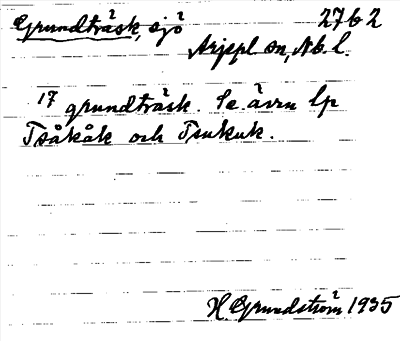 Grundträsk, sjö 2762
Arjepl. sn, Nb. l.
17 grundträsk. Se även lp
Tsåkåk och Tsukuk.
H. Grundström 1935